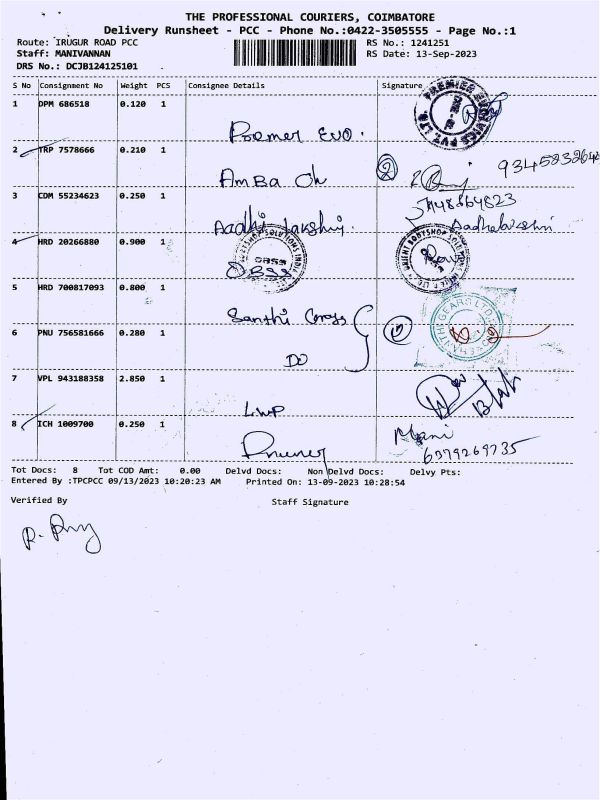 THE PROFESSIONAL COURIERS, COIMBATORE
Delivery Runsheet - PCC - Phone No.:0422-3505555 - Page No.:1
Route: IRUGUR ROAD PCC RS No.: 1241251
Staff: MANIVANNAN RS Date: 13-Sep-2023
DRS No.: DCJB124125101
S No Consignment No Weight PCS Consignee Details Signature
1 DPM 686518 0.120 1
Premer Evo.
2 TRP 7578666 0.210 1
AmBa Ch
3 CDM 55234623 0.250 1
Aadhi Lakshmi
4 HRD 20266880 0.900 1
OBSS
5 HRD 700817093 0.800 1
Santhi
6 PNU 756581666 0.280 1
DO
7 VPL 943188358 2.850 1
LWP
8 ICH 1009700 0.250 1
Mani
6379269735
Tot Docs: 8 Tot COD Amt: 0.00 Delvd Docs: Non Delvd Docs: Delvy Pts:
Entered By :TPCPCC 09/13/2023 10:20:23 AM Printed On: 13-09-2023 10:28:54
Verified By Staff Signature